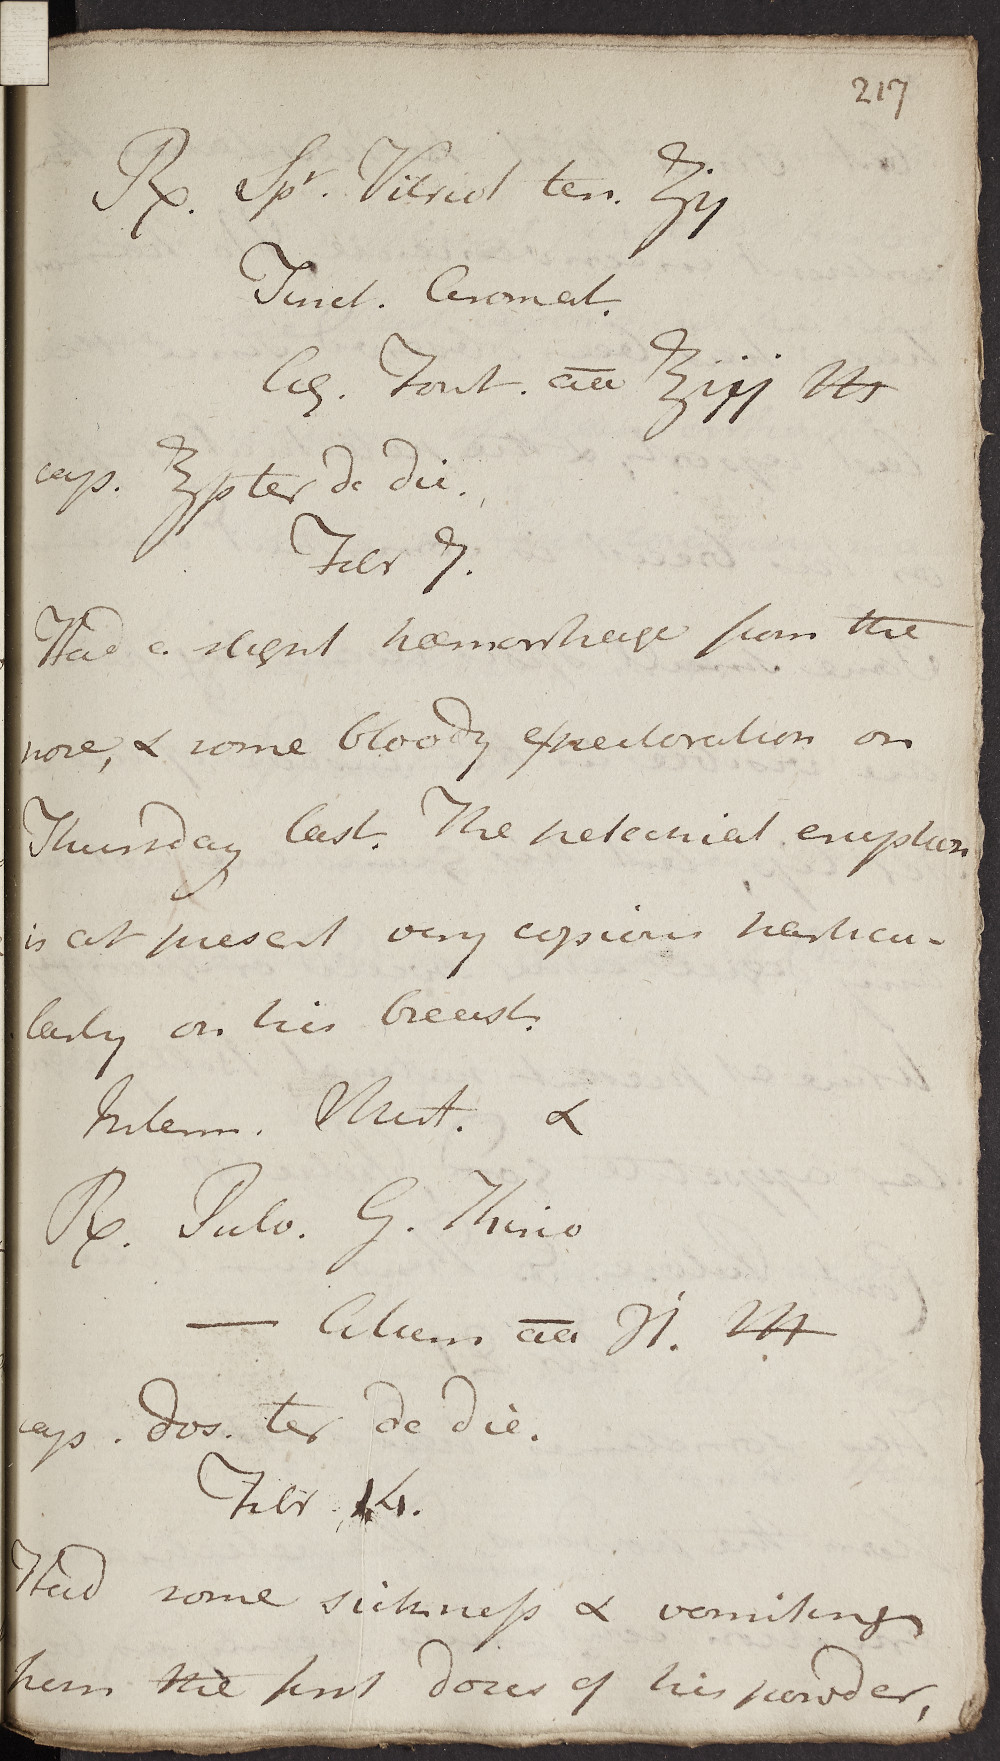 217
℞. Spr. Vitriol ten. ʒij
Tinct. Aromat.
Aq. Font. aa ℥iij M
cap. ʒſs ter de die.
Febr 7.
Had a slight hæmorrhage from the
nose, & some bloody expectoration on
Thursday last. The petechial eruption
is at present very copious particu-
larly on his breast.
Interm. Mist. &
℞. Pulv. G. Kino
— Alum aa ℈i. M
cap. dos. ter de die.
Febr 14.
Had some sickneſs & vomiting
from the first doses of his powder,